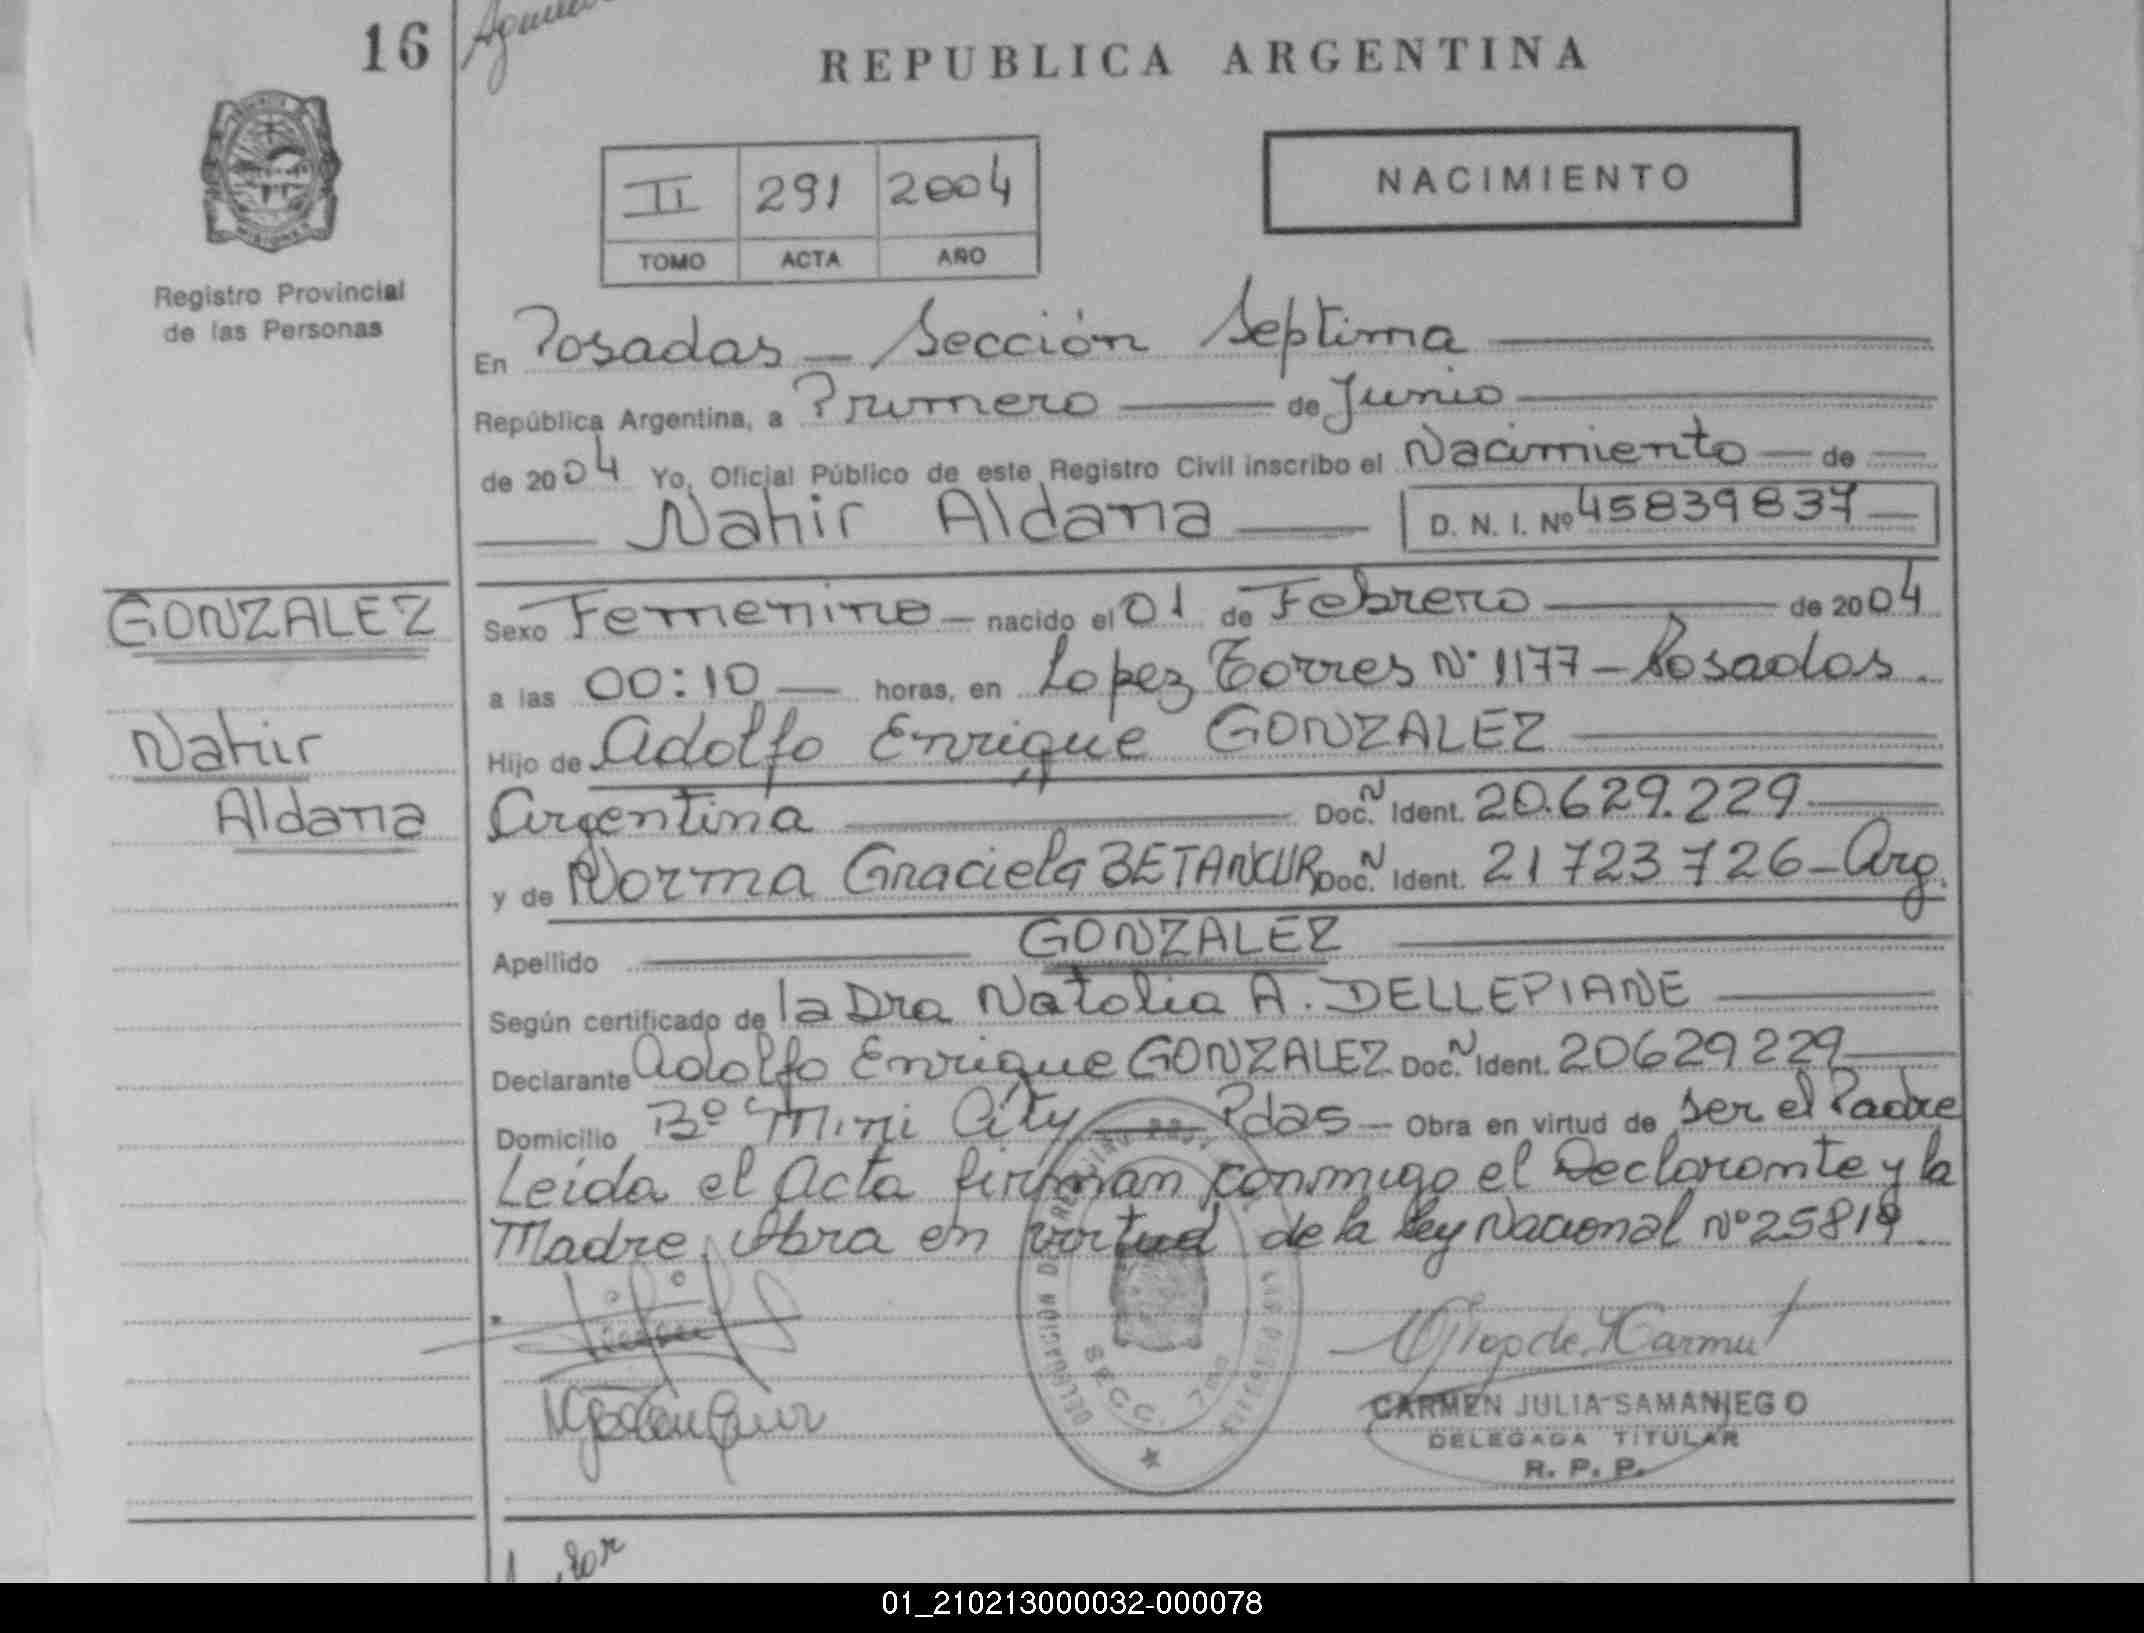 16
REPUBLICA ARGENTINA
NACIMIENTO
II 291 2004
TOMO ACTA AÑO
Registro Provincial
de las Personas
En Posadas — Sección Septima
República Argentina, a Primero de Junio
de 2004 Yo, Oficial Público de este Registro Civil inscribo el Nacimiento de
Nahir Aldana D. N. I. Nº 45839837
GONZALEZ
Nahir
Aldana
Sexo Femenino nacido el 01 de Febrero de 2004
a las 00:10 horas, en Lopez Torres Nº 1177 - Posadas.
Hijo de Adolfo Enrique GONZALEZ
Argentina Doc. N Ident. 20.629.229
y de Norma Graciela BETANCUR Doc. N Ident. 21723726 - Arg.
Apellido GONZALEZ
Según certificado de la Dra Natalia A. DELLEPIANE
Declarante Adolfo Enrique GONZALEZ Doc. N Ident. 20629229
Domicilio Bº Mini City — Pdas — Obra en virtud de ser el Padre
Leída el Acta firman conmigo el Declarante y la
Madre. Obra en virtud de la ley Nacional Nº 25819
SECC. 7ma
CARMEN JULIA SAMANIEGO
DELEGADA TITULAR
R. P. P.
01_210213000032-000078